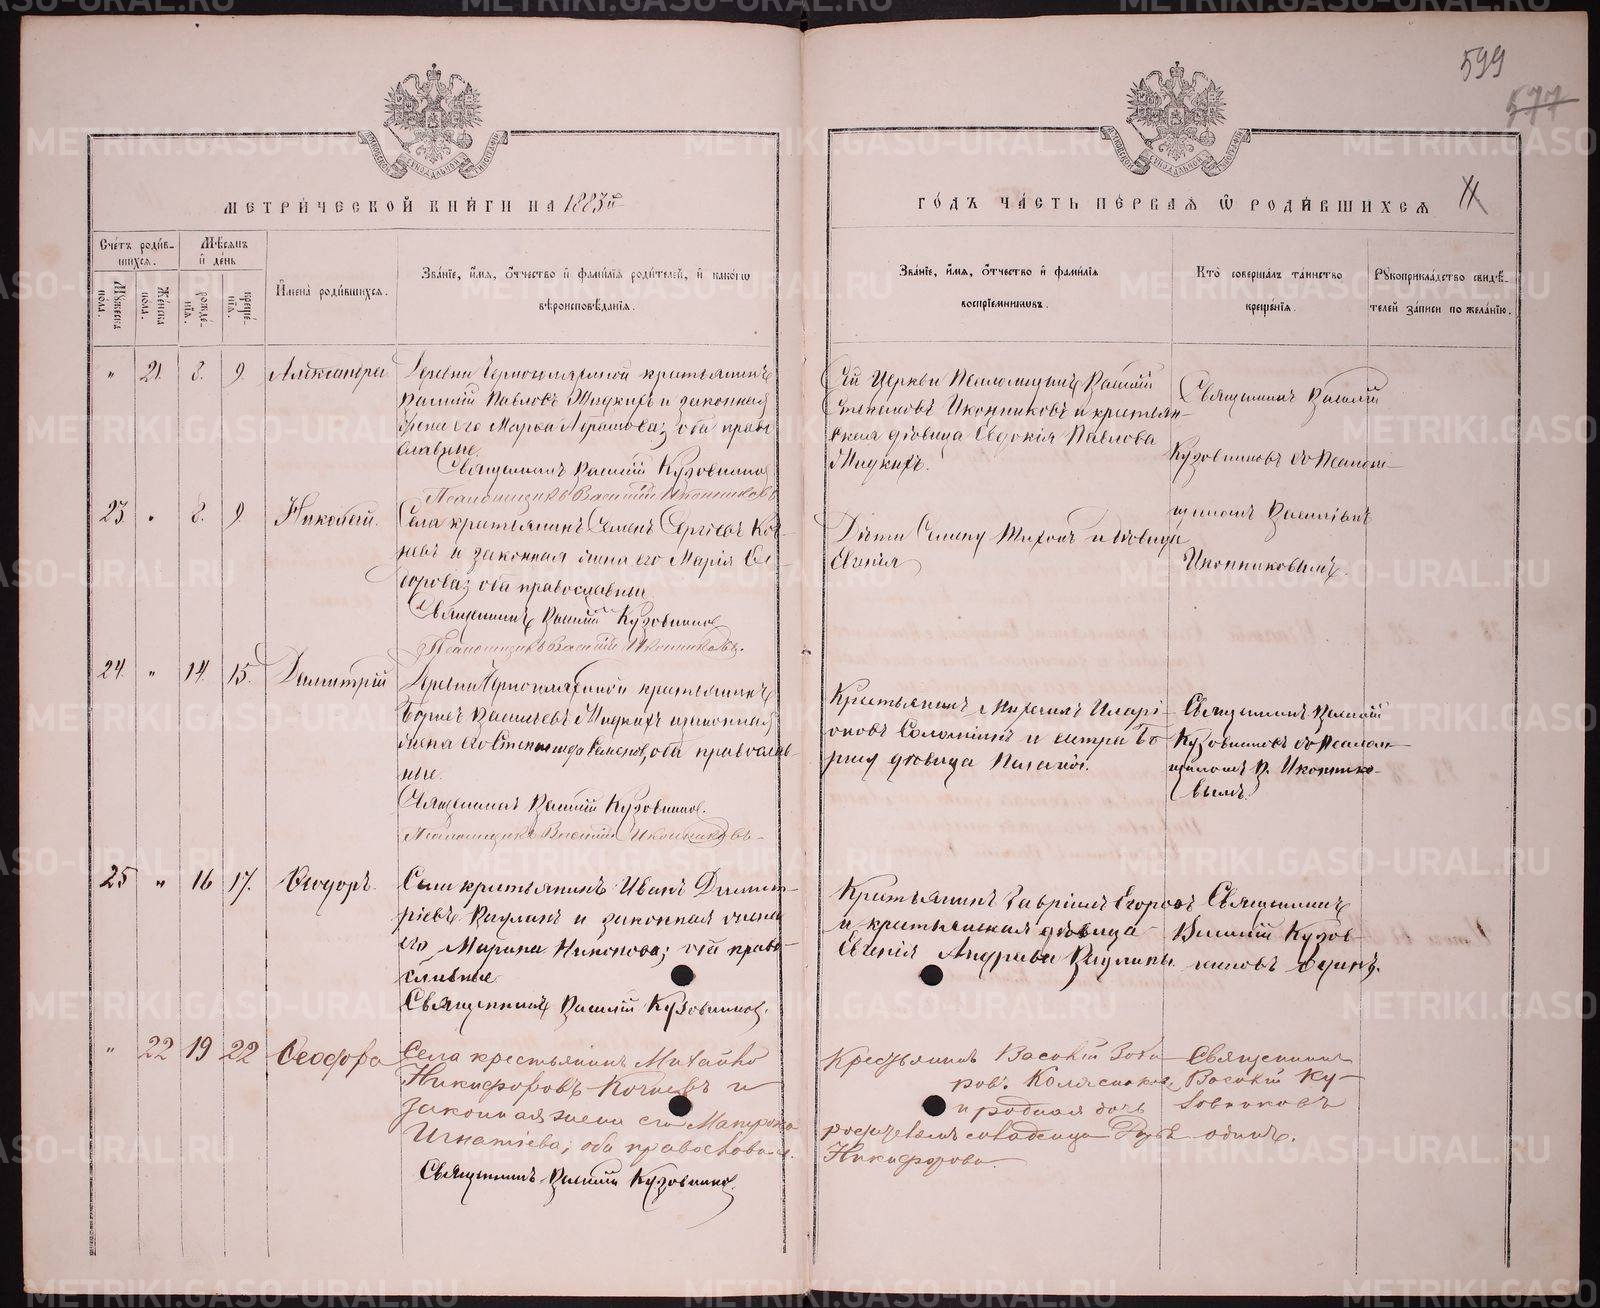 599
577
МЕТРИ́ЧЕСКОЙ КНИ́ГИ НА 1883й
ГО́ДЪ ЧА́СТЬ ПЕ́РВАЯ Ѿ РОДИ́ВШИХСЯ
Сче́тъ роди́в-
шихся.
Мѣ́сяцъ
и҆ де́нь
Му́жеска
пола.
Же́нска
пола.
рожде́-
нїя.
креще́-
нїя.
И҆мена̀ роди́вшихся.
Зва́нїе, и҆́мя, о҆́тчество и҆ фами́лїя роди́телей, и҆ како́гѡ
вѣроисповѣ́данїя.
Зва́нїе, и҆́мя, о҆́тчество и҆ фами́лїя
воспрїе́мниковъ.
Кто̀ соверша́лъ та́инство
креще́нїя.
Рꙋкоприкла́дство свидѣ́-
телей за́писи по жела́нїю.
" 21. 8. 9. Александра
Деревни крестьянинъ
Василій Павловъ и законная
жена его Марѳа оба право
славные.
Священникъ Василій Кузовников
Псаломщикъ Василій Иконниковъ
Сей Церкви Псаломщикъ Василій
Стефановъ Иконниковъ и крестьян-
ская дѣвица Евдокія Павлова
Священникъ Василій
Кузовниковъ съ Псалом-
щикомъ Василіемъ
Иконниковымъ.
23 " 8. 9. Николай.
Села крестьянинъ Семенъ Сергіевъ Коч-
невъ и законная жена его Марія Е-
горова; оба православныи
Священникъ Василій Кузовников
Псаломщикъ Василій Иконниковъ.
Дѣти Семену Тихонъ и дѣвица
Евгенія
24. " 14. 15. Димитрій
Деревни крестьянинъ
Борисъ Васильевъ и законная
жена его Степанида Семенова, оба православ-
ные.
Священникъ Василій Кузовников.
Псаломщикъ Василій Иконниковъ
Крестьянинъ Михаилъ Илларі-
оновъ и сестра Бо-
рису дѣвица
Священникъ Василій
Кузовниковъ съ Псалом-
щикомъ В. Иконнико-
вымъ.
25 " 16 17. Ѳеодоръ.
Села крестьянинъ Иванъ Димит-
ріевъ и законная жена
его Марина Никонова; оба право-
славные
Священникъ Василій Кузовников.
Крестьянинъ Гавріилъ Егоровъ
и крестьянская дѣвица
Евгенія Андреева
Священникъ
Василій Кузов-
никовъ одинъ.
" 22 19 22 Ѳеодора
Села крестьянинъ Михайло
Никифоровъ Кочневъ и
законная жена его Матрона
Игнатіева; оба православн.
Священникъ Василій Кузовников.
Крестьянинъ Василій
и родная дочь
Никифорова.
Священникъ
Василій Ку-
зовниковъ
одинъ.
METRIKI.GASO-URAL.RU